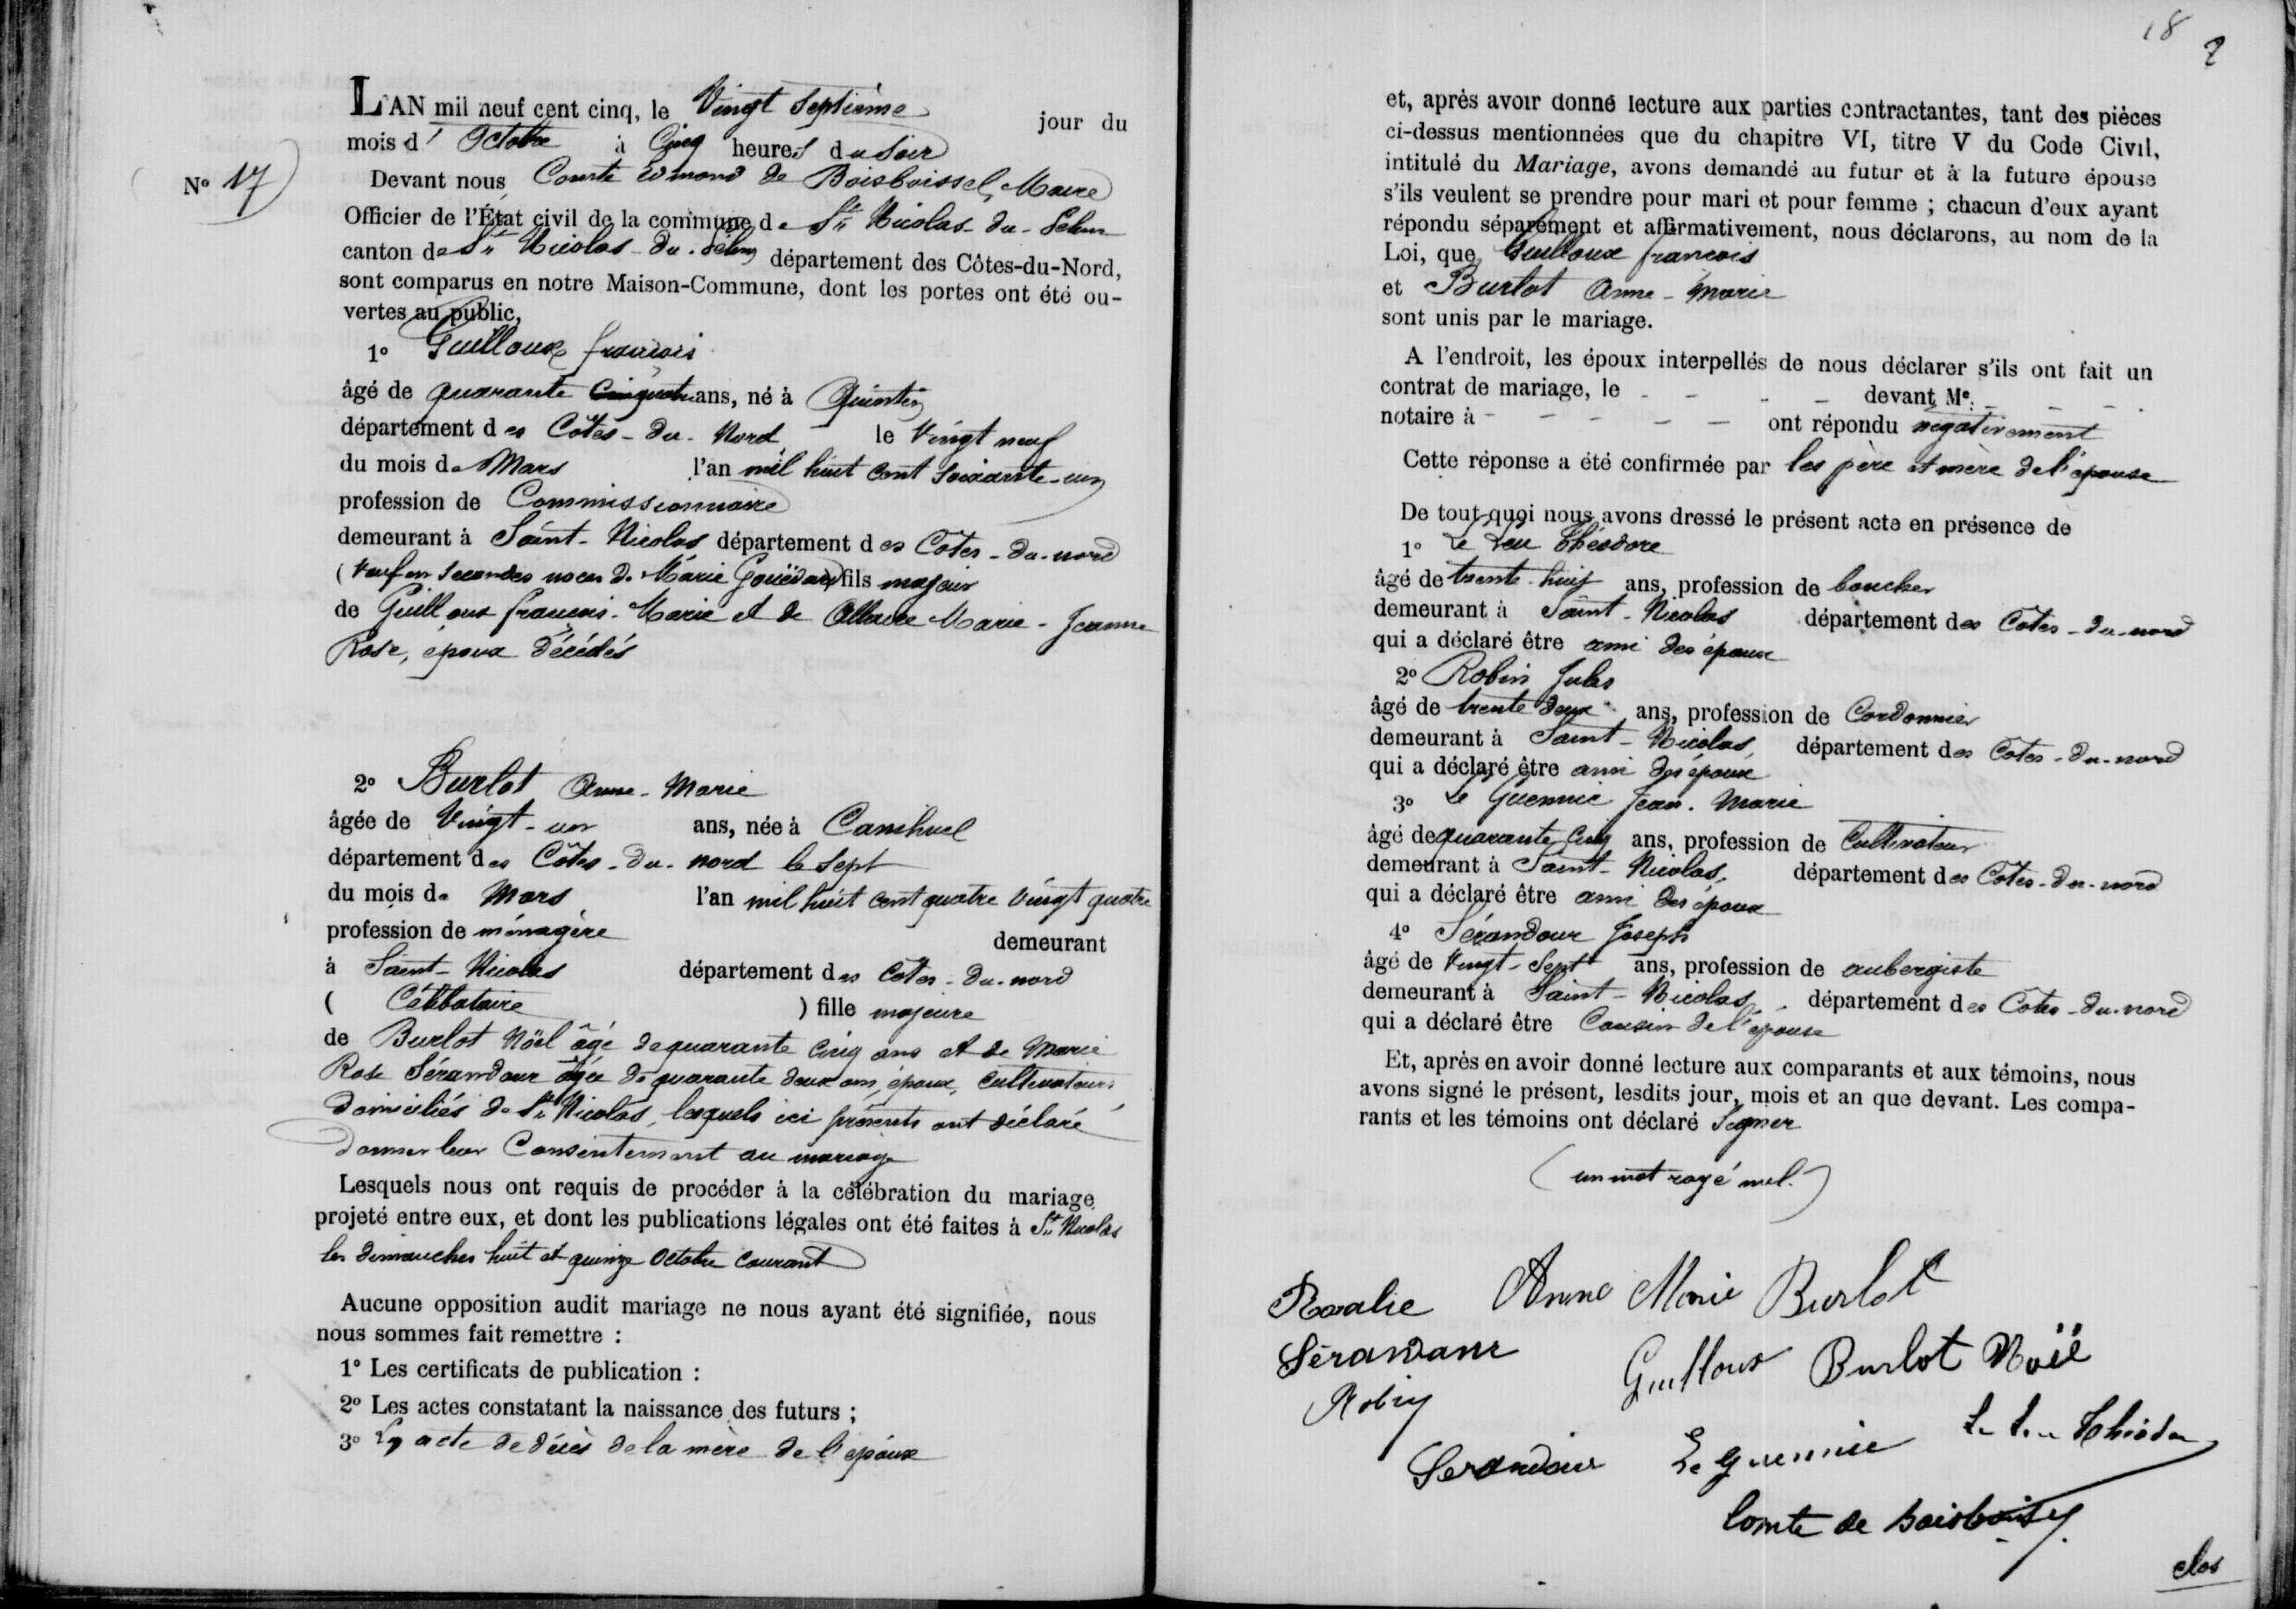 L'AN mil neuf cent cinq, le Vingt Septième jour du
mois d' Octobre à Cinq heures du Soir
N° 17
Devant nous Comte Edmond de Boisboissel, Maire
Officier de l'État civil de la commune de St Nicolas-du-Pelem
canton de St Nicolas-du-Pelem département des Côtes-du-Nord,
sont comparus en notre Maison-Commune, dont les portes ont été ou-
vertes au public,
1° Guilloux françois
âgé de quarante quatre ans, né à Quintin
département des Côtes-du-Nord le Vingt neuf
du mois de Mars l'an mil huit cent soixante-un
profession de Commissionnaire
demeurant à Saint-Nicolas département des Côtes-du-nord
(Veuf en secondes noces de Marie Gouëdard) fils majeur
de Guilloux françois-Marie et de Allaire Marie-Jeanne
Rose, époux décédés
2° Burlot Anne-Marie
âgée de Vingt-un ans, née à Canihuel
département des Côtes-du-nord le Sept
du mois de Mars l'an mil huit cent quatre vingt quatre
profession de ménagère demeurant
à Saint-Nicolas département des Côtes-du-nord
( Célibataire ) fille majeure
de Burlot Nöel âgé de quarante cinq ans et de Marie
Rose Sérandour âgée de quarante deux ans, époux, cultivateurs,
domiciliés de St Nicolas, lesquels ici présents ont déclaré
donner leur Consentement au mariage
Lesquels nous ont requis de procéder à la célébration du mariage
projeté entre eux, et dont les publications légales ont été faites à St Nicolas
les dimanches huit et quinze Octobre courant
Aucune opposition audit mariage ne nous ayant été signifiée, nous
nous sommes fait remettre :
1° Les certificats de publication :
2° Les actes constatant la naissance des futurs ;
3° acte de décès de la mère de l'époux
18
et, après avoir donné lecture aux parties contractantes, tant des pièces
ci-dessus mentionnées que du chapitre VI, titre V du Code Civil,
intitulé du Mariage, avons demandé au futur et à la future épouse
s'ils veulent se prendre pour mari et pour femme ; chacun d'eux ayant
répondu séparément et affirmativement, nous déclarons, au nom de la
Loi, que Guilloux francois
et Burlot Anne-Marie
sont unis par le mariage.
A l'endroit, les époux interpellés de nous déclarer s'ils ont fait un
contrat de mariage, le - - - - devant Me. - - -
notaire à - - - - - ont répondu négativement
Cette réponse a été confirmée par les père et mère de l'épouse
De tout quoi nous avons dressé le présent acte en présence de
1° Le Théodore
âgé de trente-huit ans, profession de boucher
demeurant à Saint-Nicolas département des Côtes-du-nord
qui a déclaré être ami des époux
2° Robin Jules
âgé de trente deux ans, profession de Cordonnier
demeurant à Saint-Nicolas, département des Côtes-du-nord
qui a déclaré être ami des époux
3° Le Guennic Jean-Marie
âgé de quarante cinq ans, profession de Cultivateur
demeurant à Saint-Nicolas, département des Côtes-du-nord
qui a déclaré être ami des époux
4° Sérandour Joseph
âgé de Vingt-Sept ans, profession de aubergiste
demeurant à Saint-Nicolas, département des Côtes-du-nord
qui a déclaré être Cousin de l'épouse
Et, après en avoir donné lecture aux comparants et aux témoins, nous
avons signé le présent, lesdits jour, mois et an que devant. Les compa-
rants et les témoins ont déclaré Signer
(un mot rayé nul.)
Rosalie Anne Marie Burlot
Sérandour Guilloux Burlot Noël
Robin
Serandour Le Guennic
Comte de Boisboissel
clos